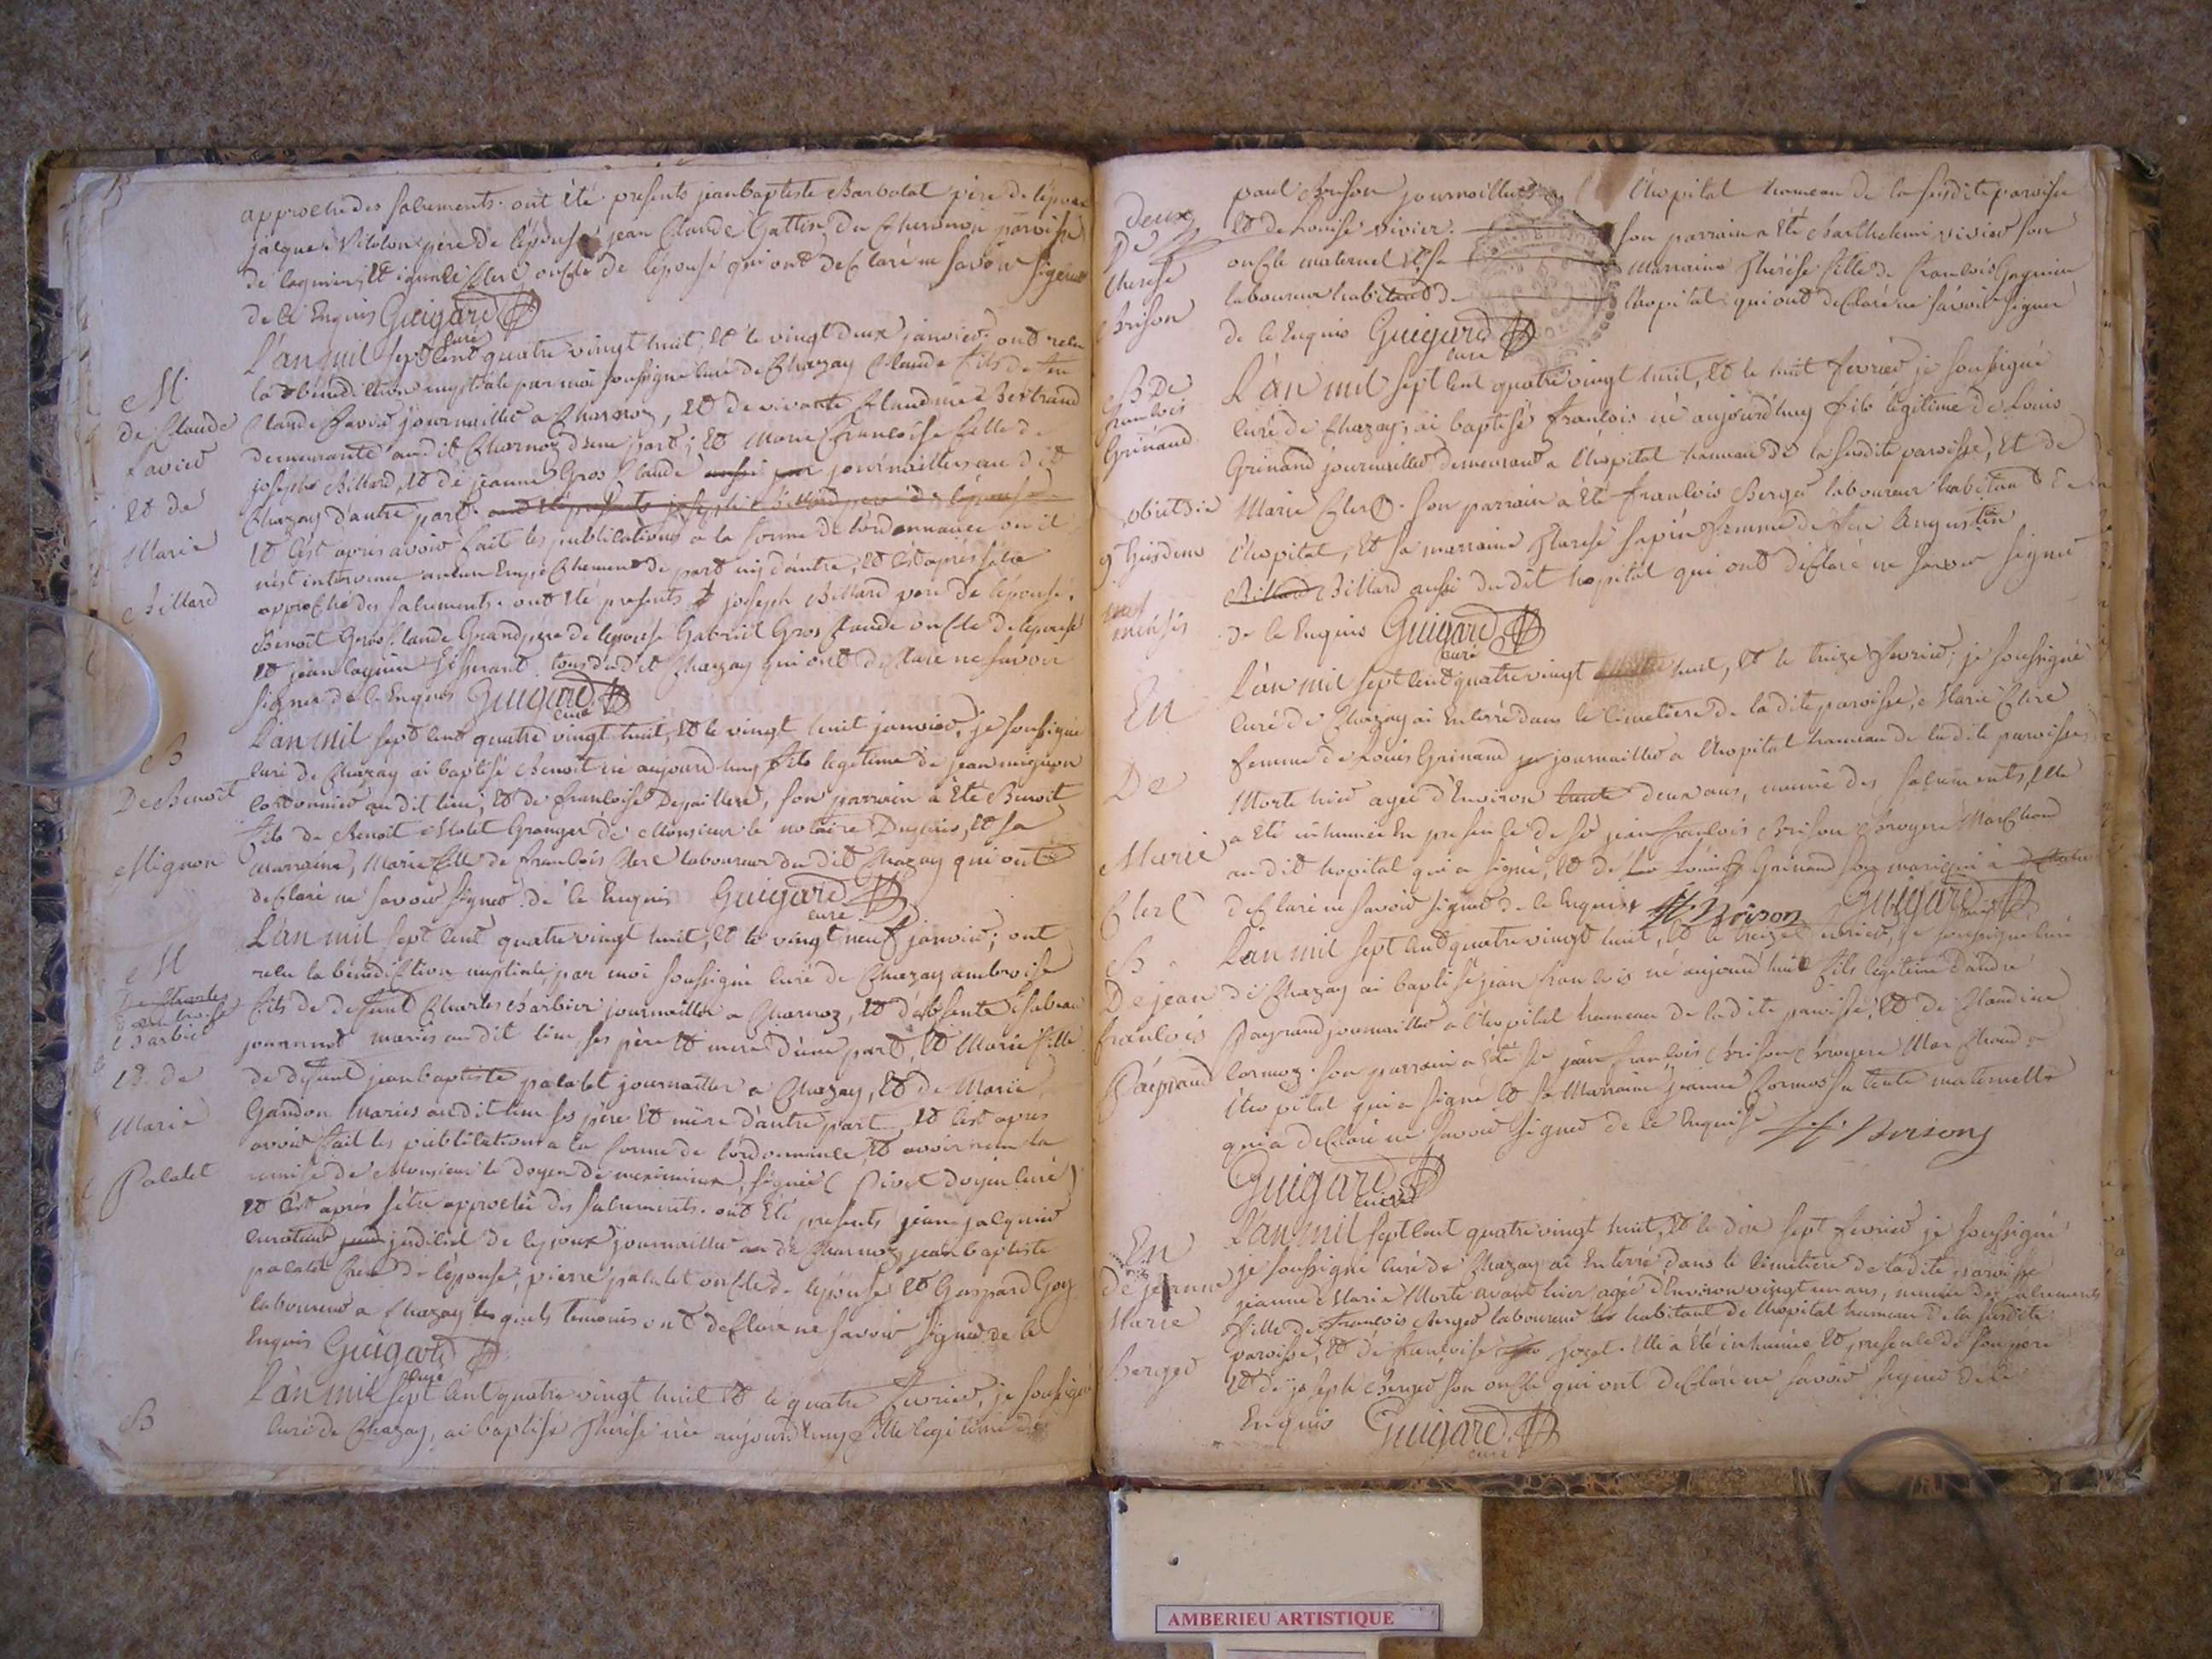 approché des sacrements. ont été presents jeanbaptiste Barbolat père de lépoux
jaque Vitolon père de lépouse jean Claude Gattin du Charonon paroisse
de lagnieu, et Clerc oncle de lépouse qui ont declaré ne savoir signer
de ce Enquis Guigard
curé
L'an mil sept cent quatre vingt huit, et le vingt deux janvier ont reçu
la bénédiction nuptiale par moi soussigné curé de Chazay Claude fils de feu
Claude Favier journaillier a Charnoz, et de vivante Claudine Bertrand
demeurante audit Charnoz d'une part; et Marie Françoise fille de
joseph Billard, et de jeanne Gros Claude journailliers au dit
Chazay d'autre part.
et c'est après avoir fait les publications a la forme de l'ordonnance ou il
n'est intervenu aucun Empechement de part ni d'autre, et c'est après s'être
approché des sacrements. ont été presents joseph Billard pere de lépouse,
Benoît Gros Claude Grandpère de lépouse Gabriel Gros Claude oncle de lépouse
et jean tous dudit Chazay qui ont declaré ne savoir
signer de ce Enquis Guigard
curé
L'an mil sept cent quatre vingt huit, et le vingt huit janvier, je soussigné
curé de Chazay ai baptisé Benoît né aujourd'huy fils legitime de jean mignon
cordonnier au dit lieu, et de françoise , son parrain a été Benoit
fils de Benoît Molet Granger de Monsieur le notaire , et sa
marraine, Marie fille de francois Clerc laboureur du dit Chazay qui ont
declaré ne savoir signer. de ce Enquis Guigard
curé
L'an mil sept cent quatre vingt huit, et le vingt neuf janvier; ont
reçu la bénédiction nuptiale, par moi soussigné curé de Chazay ambroise
fils de defunt Charles Barbier journaillier a Charnoz, et d'absente isabeau
jouannot mariés au dit lieu ses père et mere d'une part, et Marie fille
de defunt jeanbaptiste palatet journaillier a Chazay, et de Marie
Gandon Mariés audit lieu ses père et mère d'autre part et c'est apres
avoir fait les publications a la forme de l'ordonnance, et avoir reçu la
remise de Monsieur le Doyen de meximieux, signée (Rivet Doyen curé)
et c'est après s'être approché des sacrements. ont été presents jean jacquier
curateur judiciel de lepoux journaillier de Charnoz jean baptiste
palatet frère de lépouse, pierre palatet oncle de lepouse et Gaspard Goy
laboureur a Chazay les quels temoins ont declaré ne savoir signer de ce
Enquis Guigard
curé
L'an mil sept cent quatre vingt huit et le quatre fevrier, je soussigné
curé de Chazay, ai baptisé Therese née aujourd'huy fille legitime de
M
de Claude
Favier
et de
Marie
Billard
B
De Benoît
Mignon
M
De Charles
Barbier
et de
Marie
Palatet
B
paul Brison journaillier l'hopital hameau de la susdite paroisse
et de Louise Vivier. son parrain a été Barthelemi vivier son
oncle maternel et sa marraine Thérèse fille de francois Gagnieu
laboureur habitant de l'hopital qui ont declaré ne savoir signer
de ce Enquis Guigard
curé
L'an mil sept cent quatre vingt huit, et le huit fevrier je soussigné
curé de Chazay, ai baptisé francois né aujourd'huy fils légitime de Louis
Grinand journaillier demeurant a l'hopital hameau de la susdite paroisse, et de
Marie Clerc. son parrain a été francois Berger laboureur habitant de
l'hopital, et sa marraine Therese sapin femme de feu Augustin
Billard Billard aussi du dit hopital qui ont declaré ne savoir signer
de ce Enquis Guigard
curé
L'an mil sept cent quatre vingt huit, et le treize fevrier, je soussigné
curé de Chazay ai Enterré dans le Cimetiere de la dite paroisse, Marie Clerc
femme de Louis Grinand journaillier a l'hopital hameau de ladite paroisse,
Morte hier agée d'Environ trente deux ans, munie des sacrements, elle
a été inhumée En presence de Sr jean françois Brison Broyere Marchand
au dit hopital qui a signé, et de Louis Grinand son mari qui a
declaré ne savoir signer de ce Enquis Brison Guigard
curé
L'an mil sept cent quatre vingt huit, et le treize fevrier, je soussigné curé
de Chazay ai baptisé jean francois né aujourd'hui fils legitime d'andré
Paynand journaillier a l'hopital hameau de ladite paroisse, et de Claudine
Cormoz. son parrain a été Sr jean françois Brison Broyere Marchand a
l'hopital qui a signé et sa Marraine jeanne Cormoz sa tante maternelle
qui a declaré ne savoir signer de ce Enquise Brison
Guigard
curé
L'an mil sept cent quatre vingt huit, et le dix sept fevrier je soussigné
je soussigné curé de Chazay ai Enterré dans le Cimetiere de ladite paroisse
jeanne Marie Morte avant hier agée d'Environ vingt un ans, munie des sacrements
fille de francois Berger laboureur habitant de l'hopital hameau de la susdite
paroisse, et de françoise jozet. Elle a été inhumée En presence de son pere
et de joseph Berger son oncle qui ont declaré ne savoir signer de ce
Enquis Guigard
curé
deux
De
therese
Brison
B De
francois
Grinand
obiit die
mensis
En
De
Marie
Clerc
B
De jean
francois
Paynand
En
de jeanne
Marie
Berger
AMBERIEU ARTISTIQUE